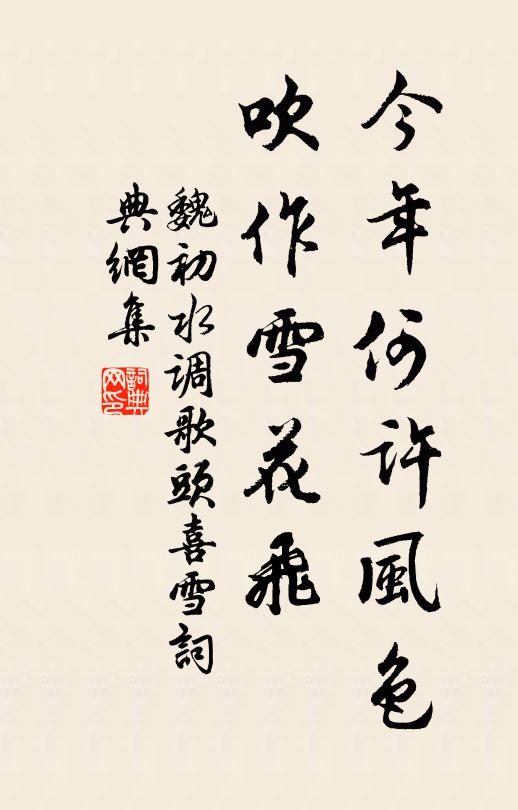 今年何許風色
吹作雪花飛
魏初水调歌頭喜雪詞
典網集
詞典网印